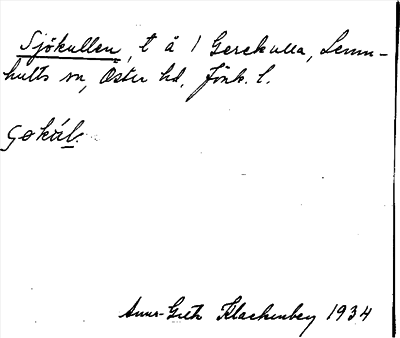 Sjökullen, t å 1 Gerekulla, Lemn-
hults sn, Öster hd, Jönk. l.
Anna-Greta Klackenberg 1934